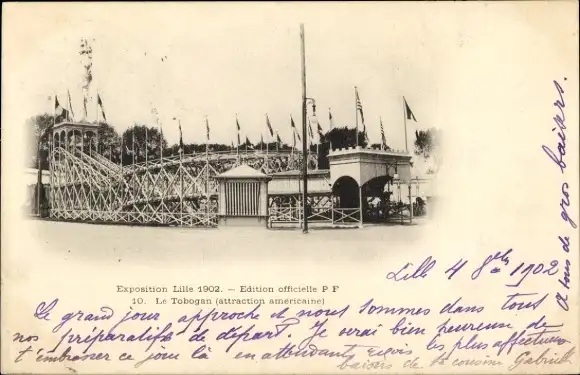 Exposition Lille 1902. — Edition officielle P F
10. Le Tobogan (attraction américaine)
Lille 4 8bre 1902
Le grand jour approche et nous sommes dans tous
nos préparatifs de départ. Je serai bien heureuse de
t'embrasser ce jour là en attendant reçois les plus affectueux
baisers de ta cousine Gabriel
A tous de gros baisers.